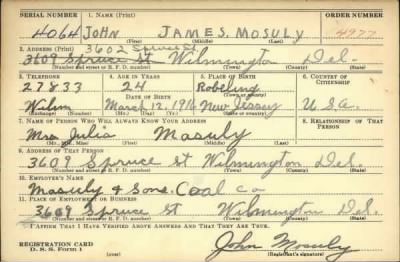 SERIAL NUMBER 1. NAME (Print) ORDER NUMBER
4064 JOHN JAMES. MOSULY 4977
(First) (Middle) (Last)
2. ADDRESS (Print) 3602 Spruce St.
3609 Spruce St. Wilmington Del.
(Number and street or R. F. D. number) (Town) (County) (State)
3. TELEPHONE 4. AGE IN YEARS 5. PLACE OF BIRTH 6. COUNTRY OF CITIZENSHIP
27833 24 Robeling
DATE OF BIRTH (Town or county)
Wilm March 12, 1916 New Jersey U.S.A.
(Exchange) (Number) (Mo.) (Day) (Yr.) (State or country)
7. NAME OF PERSON WHO WILL ALWAYS KNOW YOUR ADDRESS 8. RELATIONSHIP OF THAT PERSON
Mrs. Julia Mosuly
(Mr., Mrs., Miss) (First) (Middle) (Last)
9. ADDRESS OF THAT PERSON
3609 Spruce St Wilmington Del.
(Number and street or R. F. D. number) (Town) (County) (State)
10. EMPLOYER'S NAME
Mosuly & Sons. Coal Co
11. PLACE OF EMPLOYMENT OR BUSINESS
3609 Spruce St Wilmington Del.
(Number and street or R. F. D. number) (Town) (County) (State)
I AFFIRM THAT I HAVE VERIFIED ABOVE ANSWERS AND THAT THEY ARE TRUE.
REGISTRATION CARD
D. S. S. Form 1 John Mosuly
(Registrant's signature)